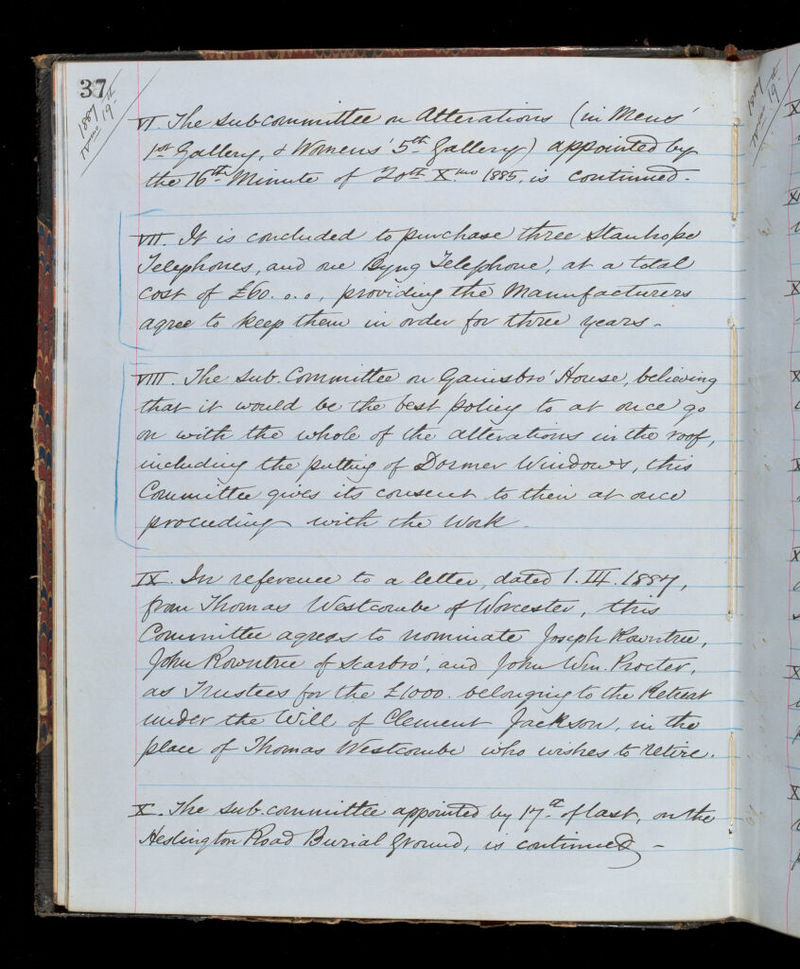 37
1887
19th
VI. The Subcommittee on Alterations (in Mens'
1st Gallery, & Womens' 5th Gallery) appointed by
the 16th Minute of 20th Xmo 1885, is continued.
VII. It is concluded to purchase three Stanhope
Telephones, and one Byng Telephone, at a total
cost of £60.0.0, providing the Manufacturers
agree to keep them in order for three years.
VIII. The Sub. Committee on Gainsbro' House, believing
that it would be the best policy to at once go
on with the whole of the alterations in the roof,
including the putting of Dormer Windows, this
Committee gives its consent to their at once
proceeding with the Work.
IX. In reference to a letter, dated 1.III.1887,
from Thomas Westcombe of Worcester, this
Committee agrees to nominate Joseph Rowntree,
John Rowntree of Scarbro', and John Wm. Procter,
as Trustees for the £1000. belonging to the Retreat
under the Will of Clement Jackson, in the
place of Thomas Westcombe who wishes to retire.
X. The Sub-committee appointed by 17th of last, on the
Heslington Road Burial Ground, is continued -